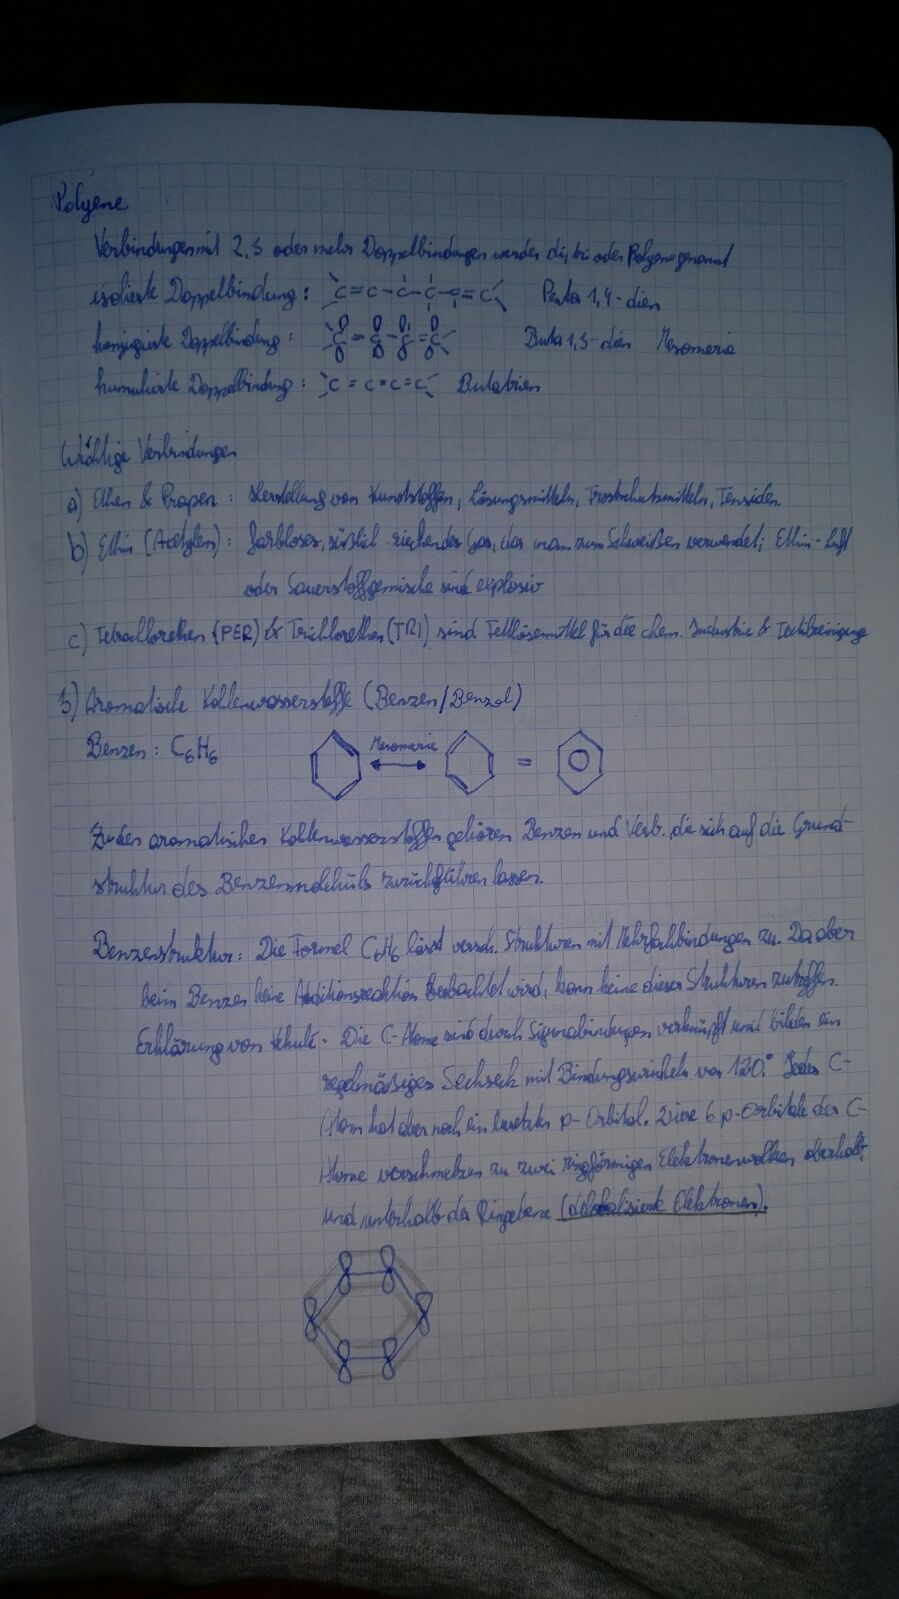 Polyene
Verbindungen mit 2,3 oder mehr Doppelbindungen werden di, tri oder Polyene genannt
isolierte Doppelbindung: C=C-C-C-C=C Penta 1,4-dien
konjugierte Doppelbindung: C=C-C=C Buta 1,3-dien Mesomerie
kumulierte Doppelbindung: C=C=C=C Butatrien
Wichtige Verbindungen
a) Ethen & Propen: Herstellung von Kunststoffen, Lösungsmitteln, Frostschutzmitteln, Tensiden.
b) Ethin (Acetylen): farbloses, süßlich riechendes Gas, das man zum Schweißen verwendet; Ethin-Luft
oder Sauerstoffgemische sind explosiv
c) Tetrachlorethen (PER) & Trichlorethen (TRI) sind Fettlösemittel für die chem. Industrie & Textilreinigung
3) Aromatische Kohlenwasserstoffe (Benzen/Benzol)
Benzen: C6H6 Mesomerie =
Zu den aromatischen Kohlenwasserstoffen gehören Benzen und Verb. die sich auf die Grund-
struktur des Benzenmoleküls zurückführen lassen.
Benzenstruktur: Die Formel C6H6 lässt versch. Strukturen mit Mehrfachbindungen zu. Da aber
beim Benzen keine Additionsreaktion beobachtet wird, kann keine dieser Strukturen zutreffen.
Erklärung von Kekulé: Die C-Atome sind durch Sigmabindungen verknüpft und bilden ein
regelmäßiges Sechseck mit Bindungswinkeln von 120°. Jedes C-
Atom hat aber noch ein besetztes p-Orbital. Diese 6 p-Orbitale der C-
Atome verschmelzen zu zwei ringförmigen Elektronenwolken oberhalb
und unterhalb der Ringebene (delokalisierte Elektronen).